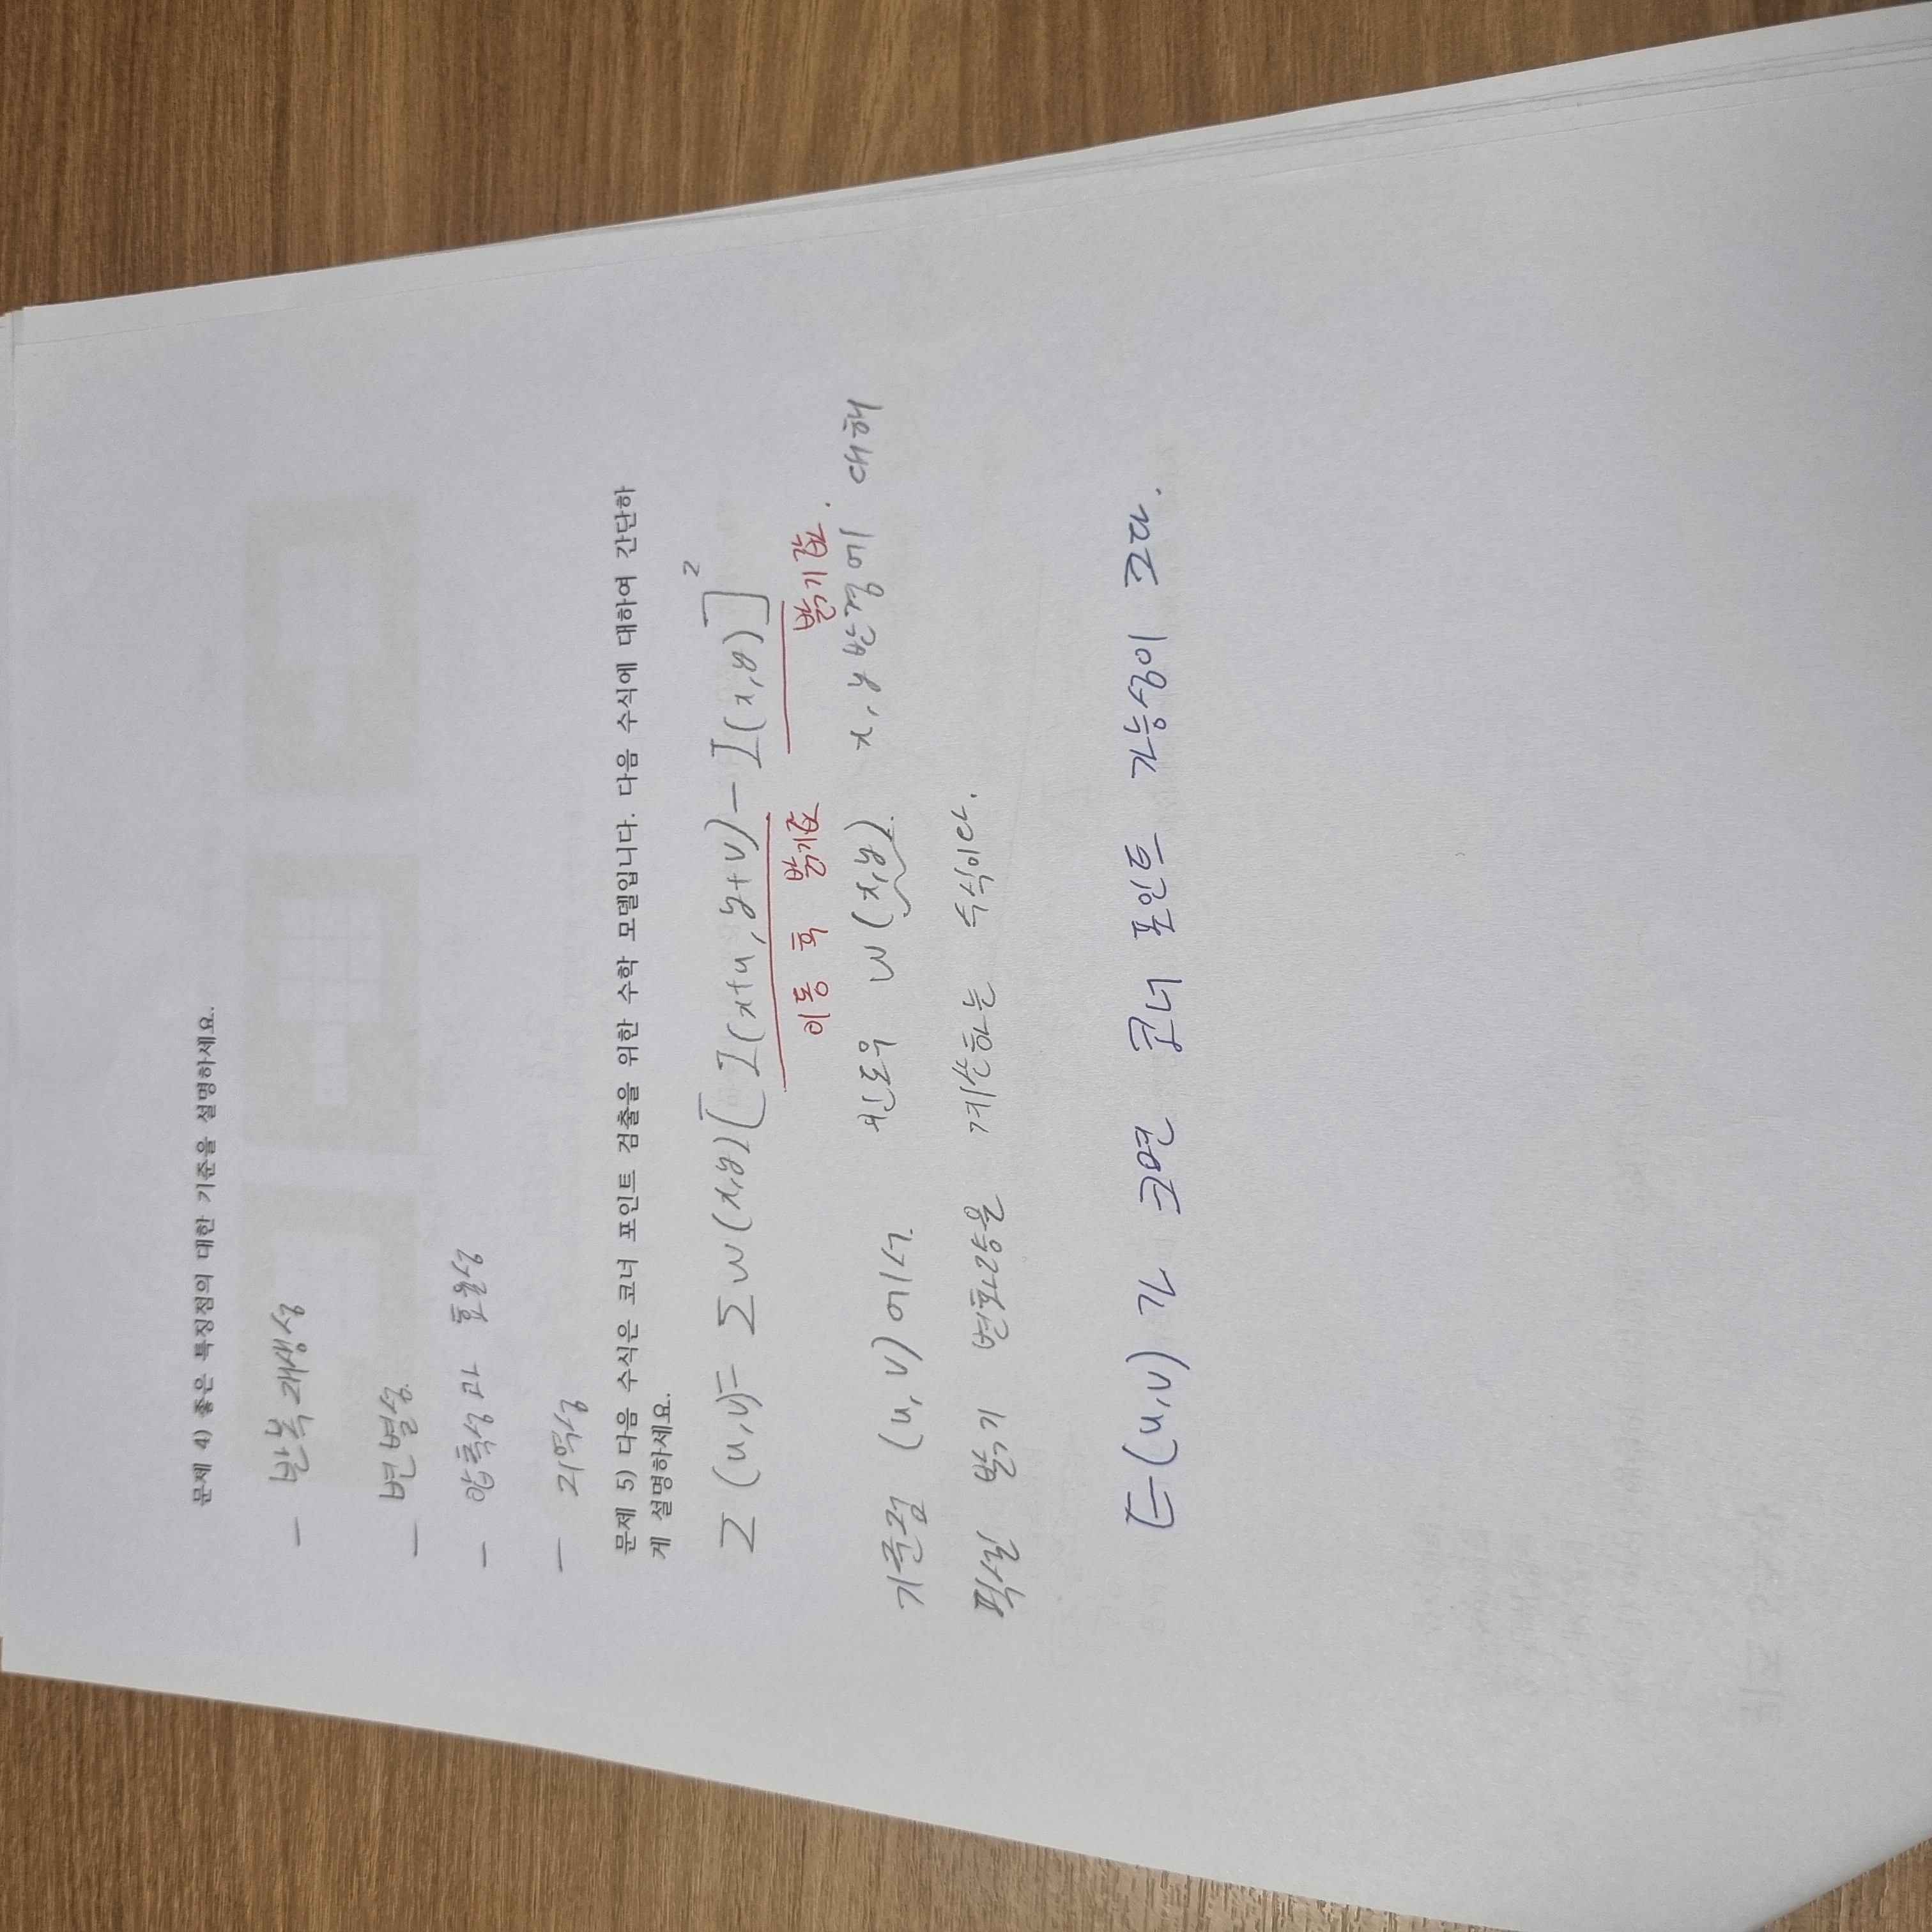 문제 4) 좋은 특징점의 대한 기준을 설명하세요.
– 반복재생성
– 변별성
– 압축성과 효율성
– 지역성
문제 5) 다음 수식은 코너 포인트 검출을 위한 수학 모델입니다. 다음 수식에 대하여 간단하
게 설명하세요.
Σ (u,v)= Σw(x,y)[I(x+u, y+v) – I(x,y)]²
이동 후 밝기값 밝기값.
기준점 (u,v)에서 윈도우 w(x,y). x,y반경에 대해
픽셀 밝기 변화량을 계산하는 수식이다.
E(u,v)가 크면 코너 포인트 가능성이 크다.